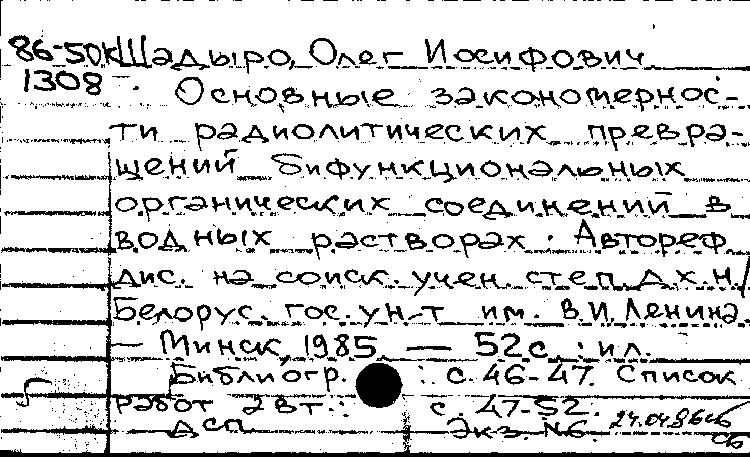 86-50к Шадыро, Олег Иосифович
1308 . Основные закономернос-
ти радиолитических превра-
щений бифункциональных
органических соединений в
водных растворах. Автореф.
дис. на соиск. учен. степ. д.х.н/
Белорус. гос. ун-т им. В.И. Ленина.
— Минск, 1985. — 52 с. : ил.
Библиогр. : с. 46-47. Список
работ авт.: с. 47-52.
ДСП Экз. №6. 24.04.86
сб